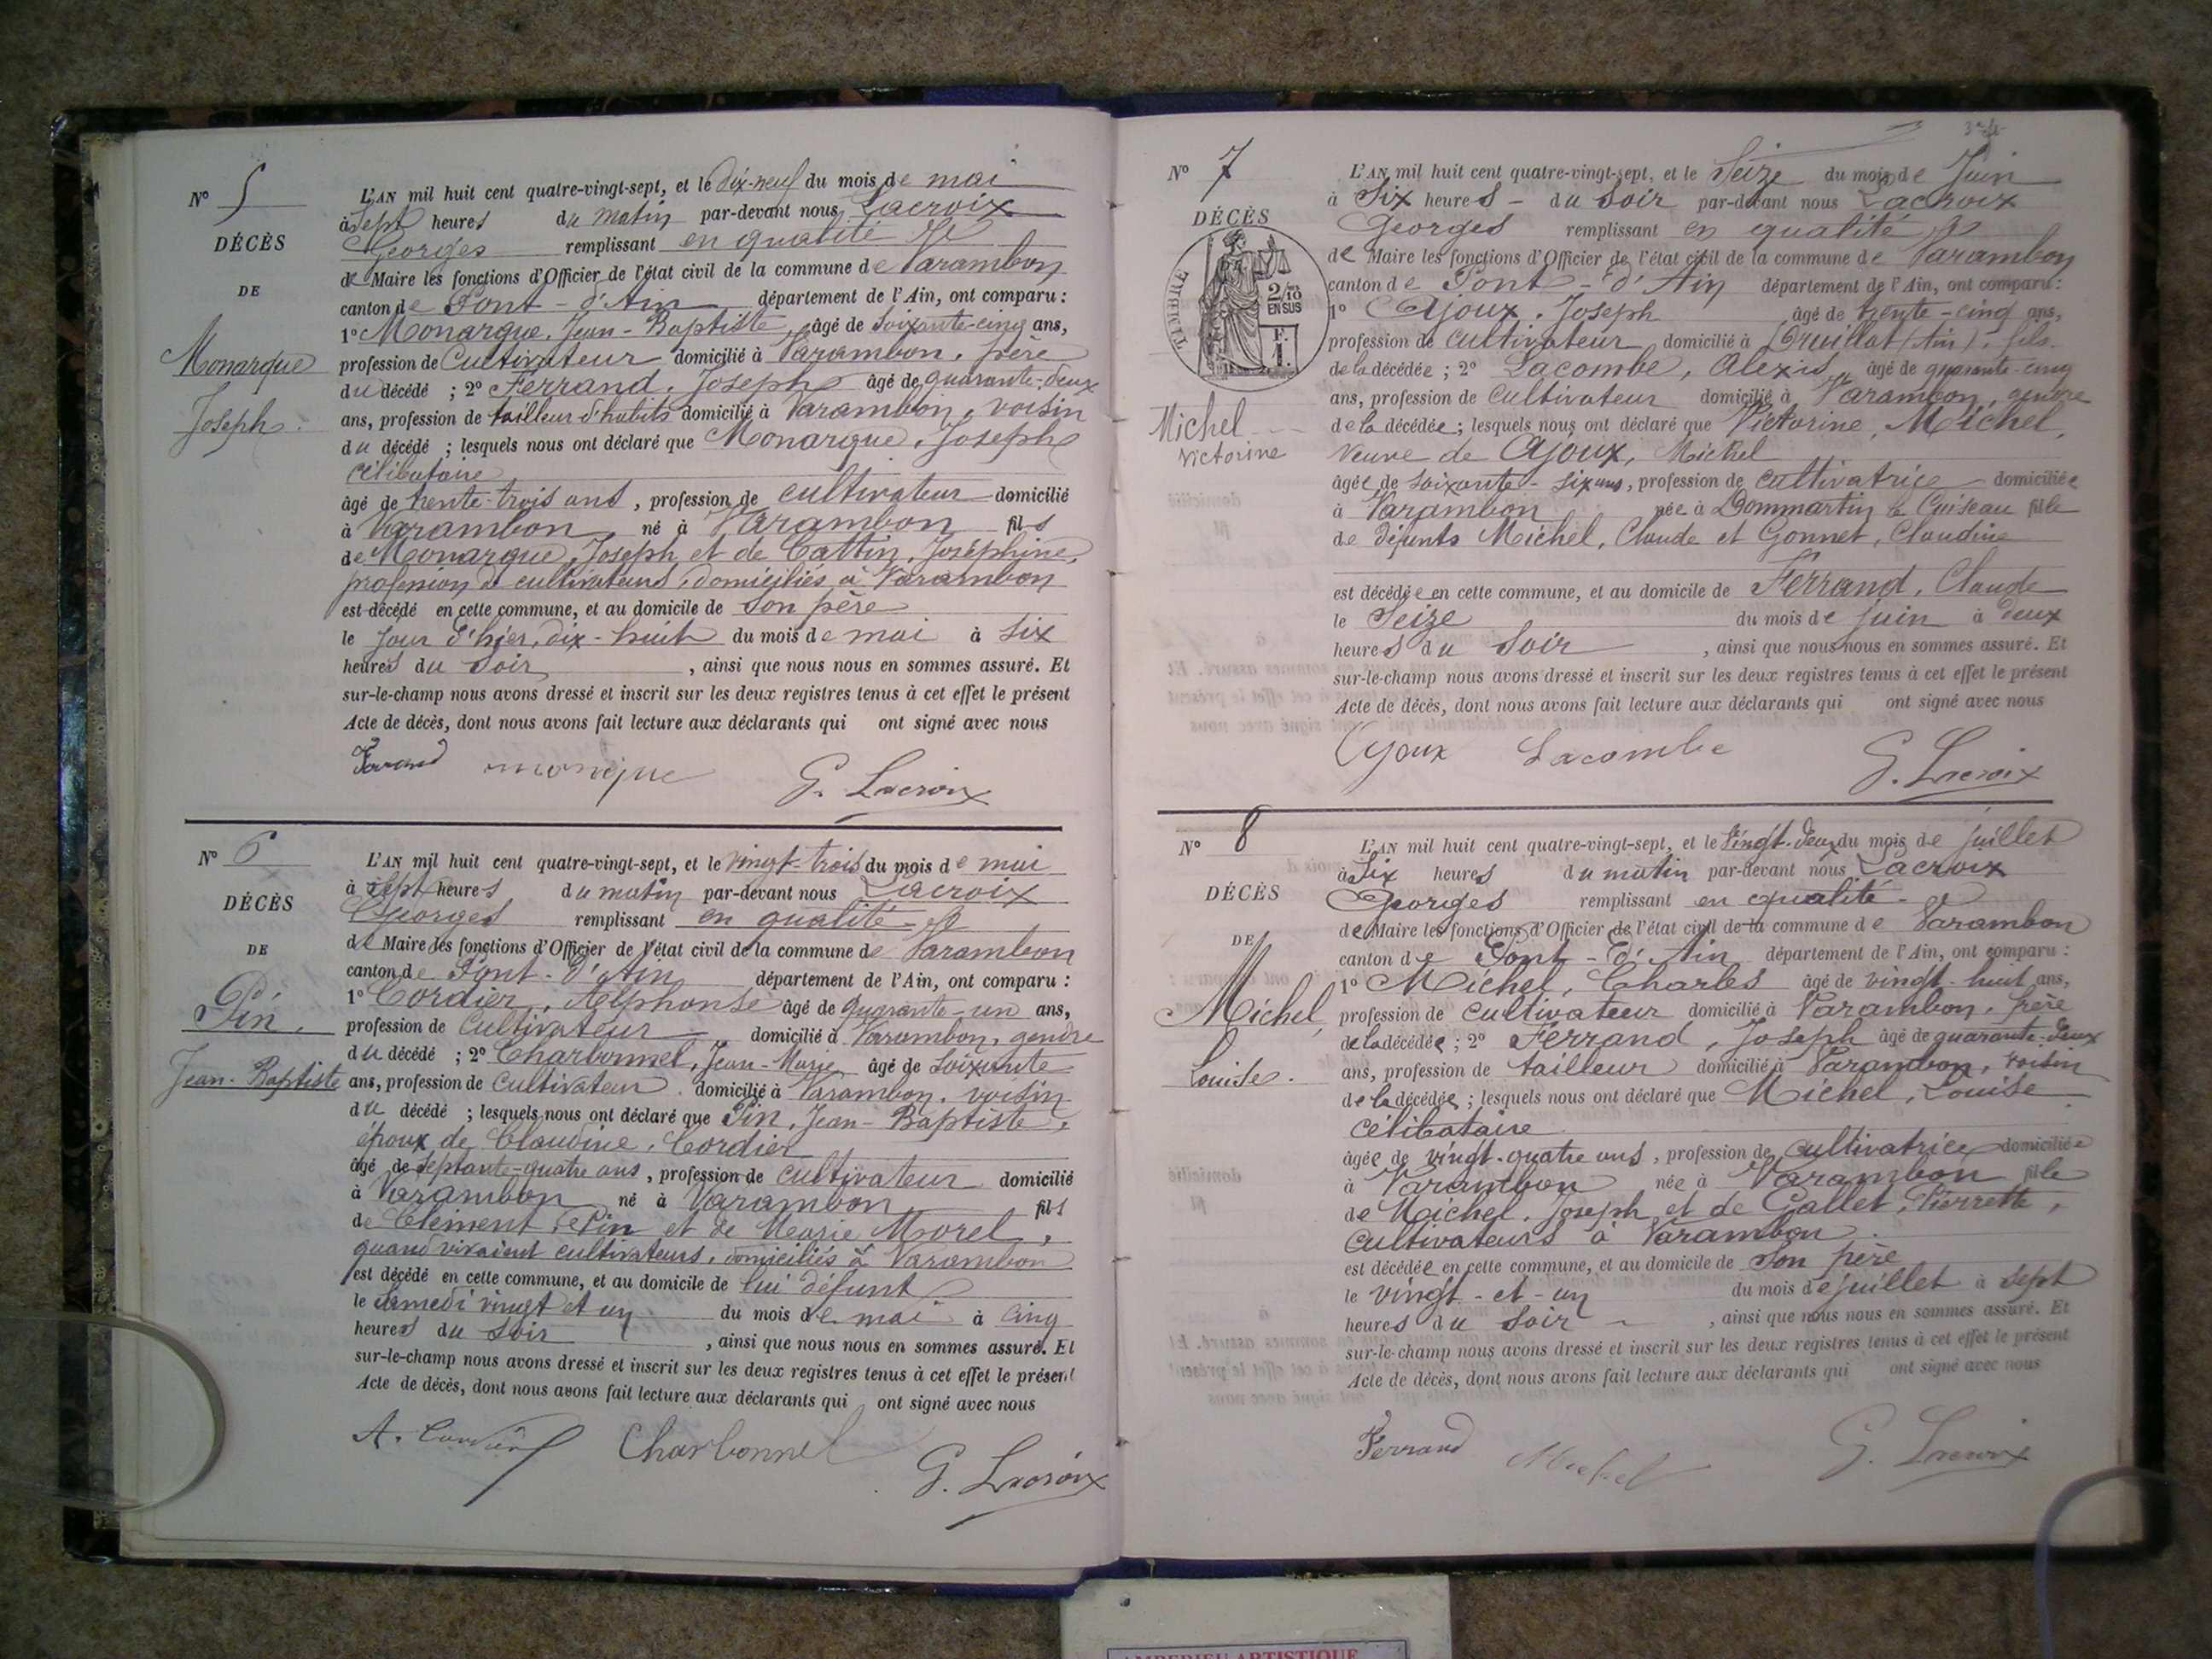 N° 5
DÉCÈS
DE
Monarque
Joseph.
L'AN mil huit cent quatre-vingt-sept, et le dix-neuf du mois de mai
à sept heures du matin par-devant nous Lacroix
Georges remplissant en qualité
de Maire les fonctions d'Officier de l'état civil de la commune de Varambon
canton de Pont-d'Ain département de l'Ain, ont comparu :
1° Monarque, Jean-Baptiste, âgé de soixante-cinq ans,
profession de Cultivateur domicilié à Varambon, père
du décédé ; 2° Ferrand, Joseph âgé de quarante-deux
ans, profession de tailleur d'habits domicilié à Varambon, voisin
du décédé ; lesquels nous ont déclaré que Monarque, Joseph
célibataire
âgé de trente-trois ans, profession de cultivateur domicilié
à Varambon né à Varambon fils
de Monarque, Joseph et de Cattin, Joséphine,
profession de cultivateurs, domiciliés à Varambon
est décédé en cette commune, et au domicile de son père
le jour d'hier, dix-huit du mois de mai à six
heures du soir, ainsi que nous nous en sommes assuré. Et
sur-le-champ nous avons dressé et inscrit sur les deux registres tenus à cet effet le présent
Acte de décès, dont nous avons fait lecture aux déclarants qui ont signé avec nous
Ferrand monarque G. Lacroix
N° 6
DÉCÈS
DE
Pin,
Jean-Baptiste
L'AN mil huit cent quatre-vingt-sept, et le vingt-trois du mois de mai
à sept heures du matin par-devant nous Lacroix
Georges remplissant en qualité
de Maire les fonctions d'Officier de l'état civil de la commune de Varambon
canton de Pont-d'Ain département de l'Ain, ont comparu :
1° Cordier, Alphonse âgé de quarante-un ans,
profession de Cultivateur domicilié à Varambon, gendre
du décédé ; 2° Charbonnel, Jean-Marie âgé de soixante
ans, profession de cultivateur domicilié à Varambon, voisin
du décédé ; lesquels nous ont déclaré que Pin, Jean-Baptiste,
époux de Claudine, Cordier
âgé de septante-quatre ans, profession de cultivateur domicilié
à Varambon né à Varambon fils
de Clément, Pin et de Marie Morel,
quand vivaient cultivateurs, domiciliés à Varambon
est décédé en cette commune, et au domicile de lui défunt
le samedi vingt et un du mois de mai à cinq
heures du soir, ainsi que nous nous en sommes assuré. Et
sur-le-champ nous avons dressé et inscrit sur les deux registres tenus à cet effet le présent
Acte de décès, dont nous avons fait lecture aux déclarants qui ont signé avec nous
A. Cordier Charbonnel G. Lacroix
N° 7
DÉCÈS
TIMBRE
2/10 EN SUS
F. 1.
Michel
Victorine
L'AN mil huit cent quatre-vingt-sept, et le Seize du mois de Juin
à Six heures du soir par-devant nous Lacroix
Georges remplissant en qualité
de Maire les fonctions d'Officier de l'état civil de la commune de Varambon
canton de Pont-d'Ain département de l'Ain, ont comparu :
1° Ajoux, Joseph âgé de trente-cinq ans,
profession de cultivateur domicilié à Druillat (Ain), fils
de la décédée ; 2° Lacombe, Alexis, âgé de quarante-cinq
ans, profession de Cultivateur domicilié à Varambon, gendre
de la décédée ; lesquels nous ont déclaré que Victorine, Michel,
Veuve de Ajoux, Michel
âgée de soixante-six ans, profession de cultivatrice domiciliée
à Varambon née à Dommartin le Cuiseau fille
de défunts Michel, Claude et Gonnet, Claudine
est décédée en cette commune, et au domicile de Ferrand, Claude
le Seize du mois de juin à deux
heures du soir, ainsi que nous nous en sommes assuré. Et
sur-le-champ nous avons dressé et inscrit sur les deux registres tenus à cet effet le présent
Acte de décès, dont nous avons fait lecture aux déclarants qui ont signé avec nous
Ajoux Lacombe G. Lacroix
N° 8
DÉCÈS
DE
Michel,
Louise.
L'AN mil huit cent quatre-vingt-sept, et le vingt-deux du mois de juillet
à Six heures du matin par-devant nous Lacroix
Georges remplissant en qualité
de Maire les fonctions d'Officier de l'état civil de la commune de Varambon
canton de Pont-d'Ain département de l'Ain, ont comparu :
1° Michel, Charles âgé de vingt-huit ans,
profession de cultivateur domicilié à Varambon, frère
de la décédée ; 2° Ferrand, Joseph âgé de quarante-deux
ans, profession de tailleur domicilié à Varambon, voisin
de la décédée ; lesquels nous ont déclaré que Michel, Louise
célibataire
âgée de vingt-quatre ans, profession de cultivatrice domiciliée
à Varambon née à Varambon fille
de Michel, Joseph et de Gallet, Pierrette,
cultivateurs à Varambon
est décédée en cette commune, et au domicile de son père
le vingt-et-un du mois de juillet à sept
heures du soir, ainsi que nous nous en sommes assuré. Et
sur-le-champ nous avons dressé et inscrit sur les deux registres tenus à cet effet le présent
Acte de décès, dont nous avons fait lecture aux déclarants qui ont signé avec nous
Ferrand Michel G. Lacroix